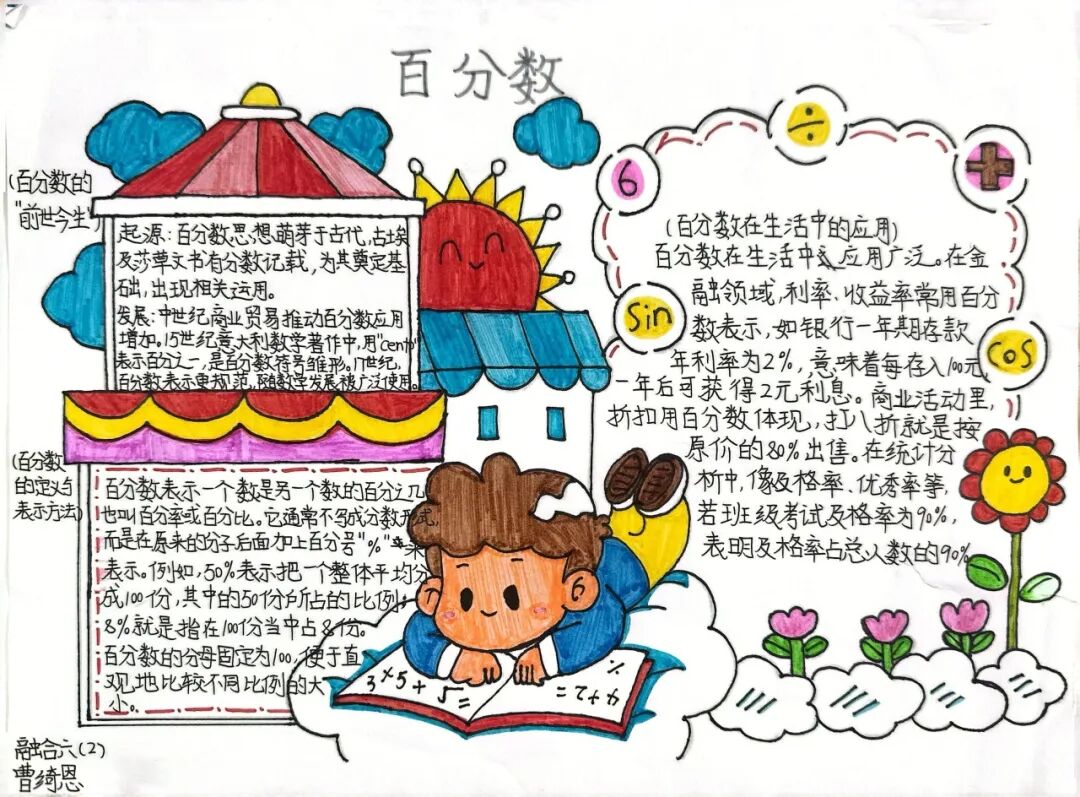 百分数
(百分数的
"前世今生")
起源:百分数思想萌芽于古代,古埃
及莎草文书有分数记载,为其奠定基
础,出现相关运用。
发展:中世纪商业贸易推动百分数应用
增加。15世纪意大利数学著作中,用"cento"
表示百分之一,是百分数符号雏形。17世纪,
百分数表示更规范,随数学发展被广泛使用。
(百分数
的定义与
表示方法)
百分数表示一个数是另一个数的百分之几
也叫百分率或百分比。它通常不写成分数形式,
而是在原来的分子后面加上百分号"%"来
表示。例如,50%表示把一个整体平均分
成100份,其中的50份所占的比例。
8%就是指在100份当中占8份。
百分数的分母固定为100,便于直
观地比较不同比例的大
小。
6
÷
+
sin
cos
(百分数在生活中的应用)
百分数在生活中应用广泛。在金
融领域,利率、收益率常用百分
数表示,如银行一年期存款
年利率为2%,意味着每存入100元,
一年后可获得2元利息。商业活动里,
折扣用百分数体现,打八折就是按
原价的80%出售。在统计分
析中,像及格率、优秀率等,
若班级考试及格率为90%,
表明及格率占总人数的90%
3×5+5=
%
融合六(2)
曹绮恩